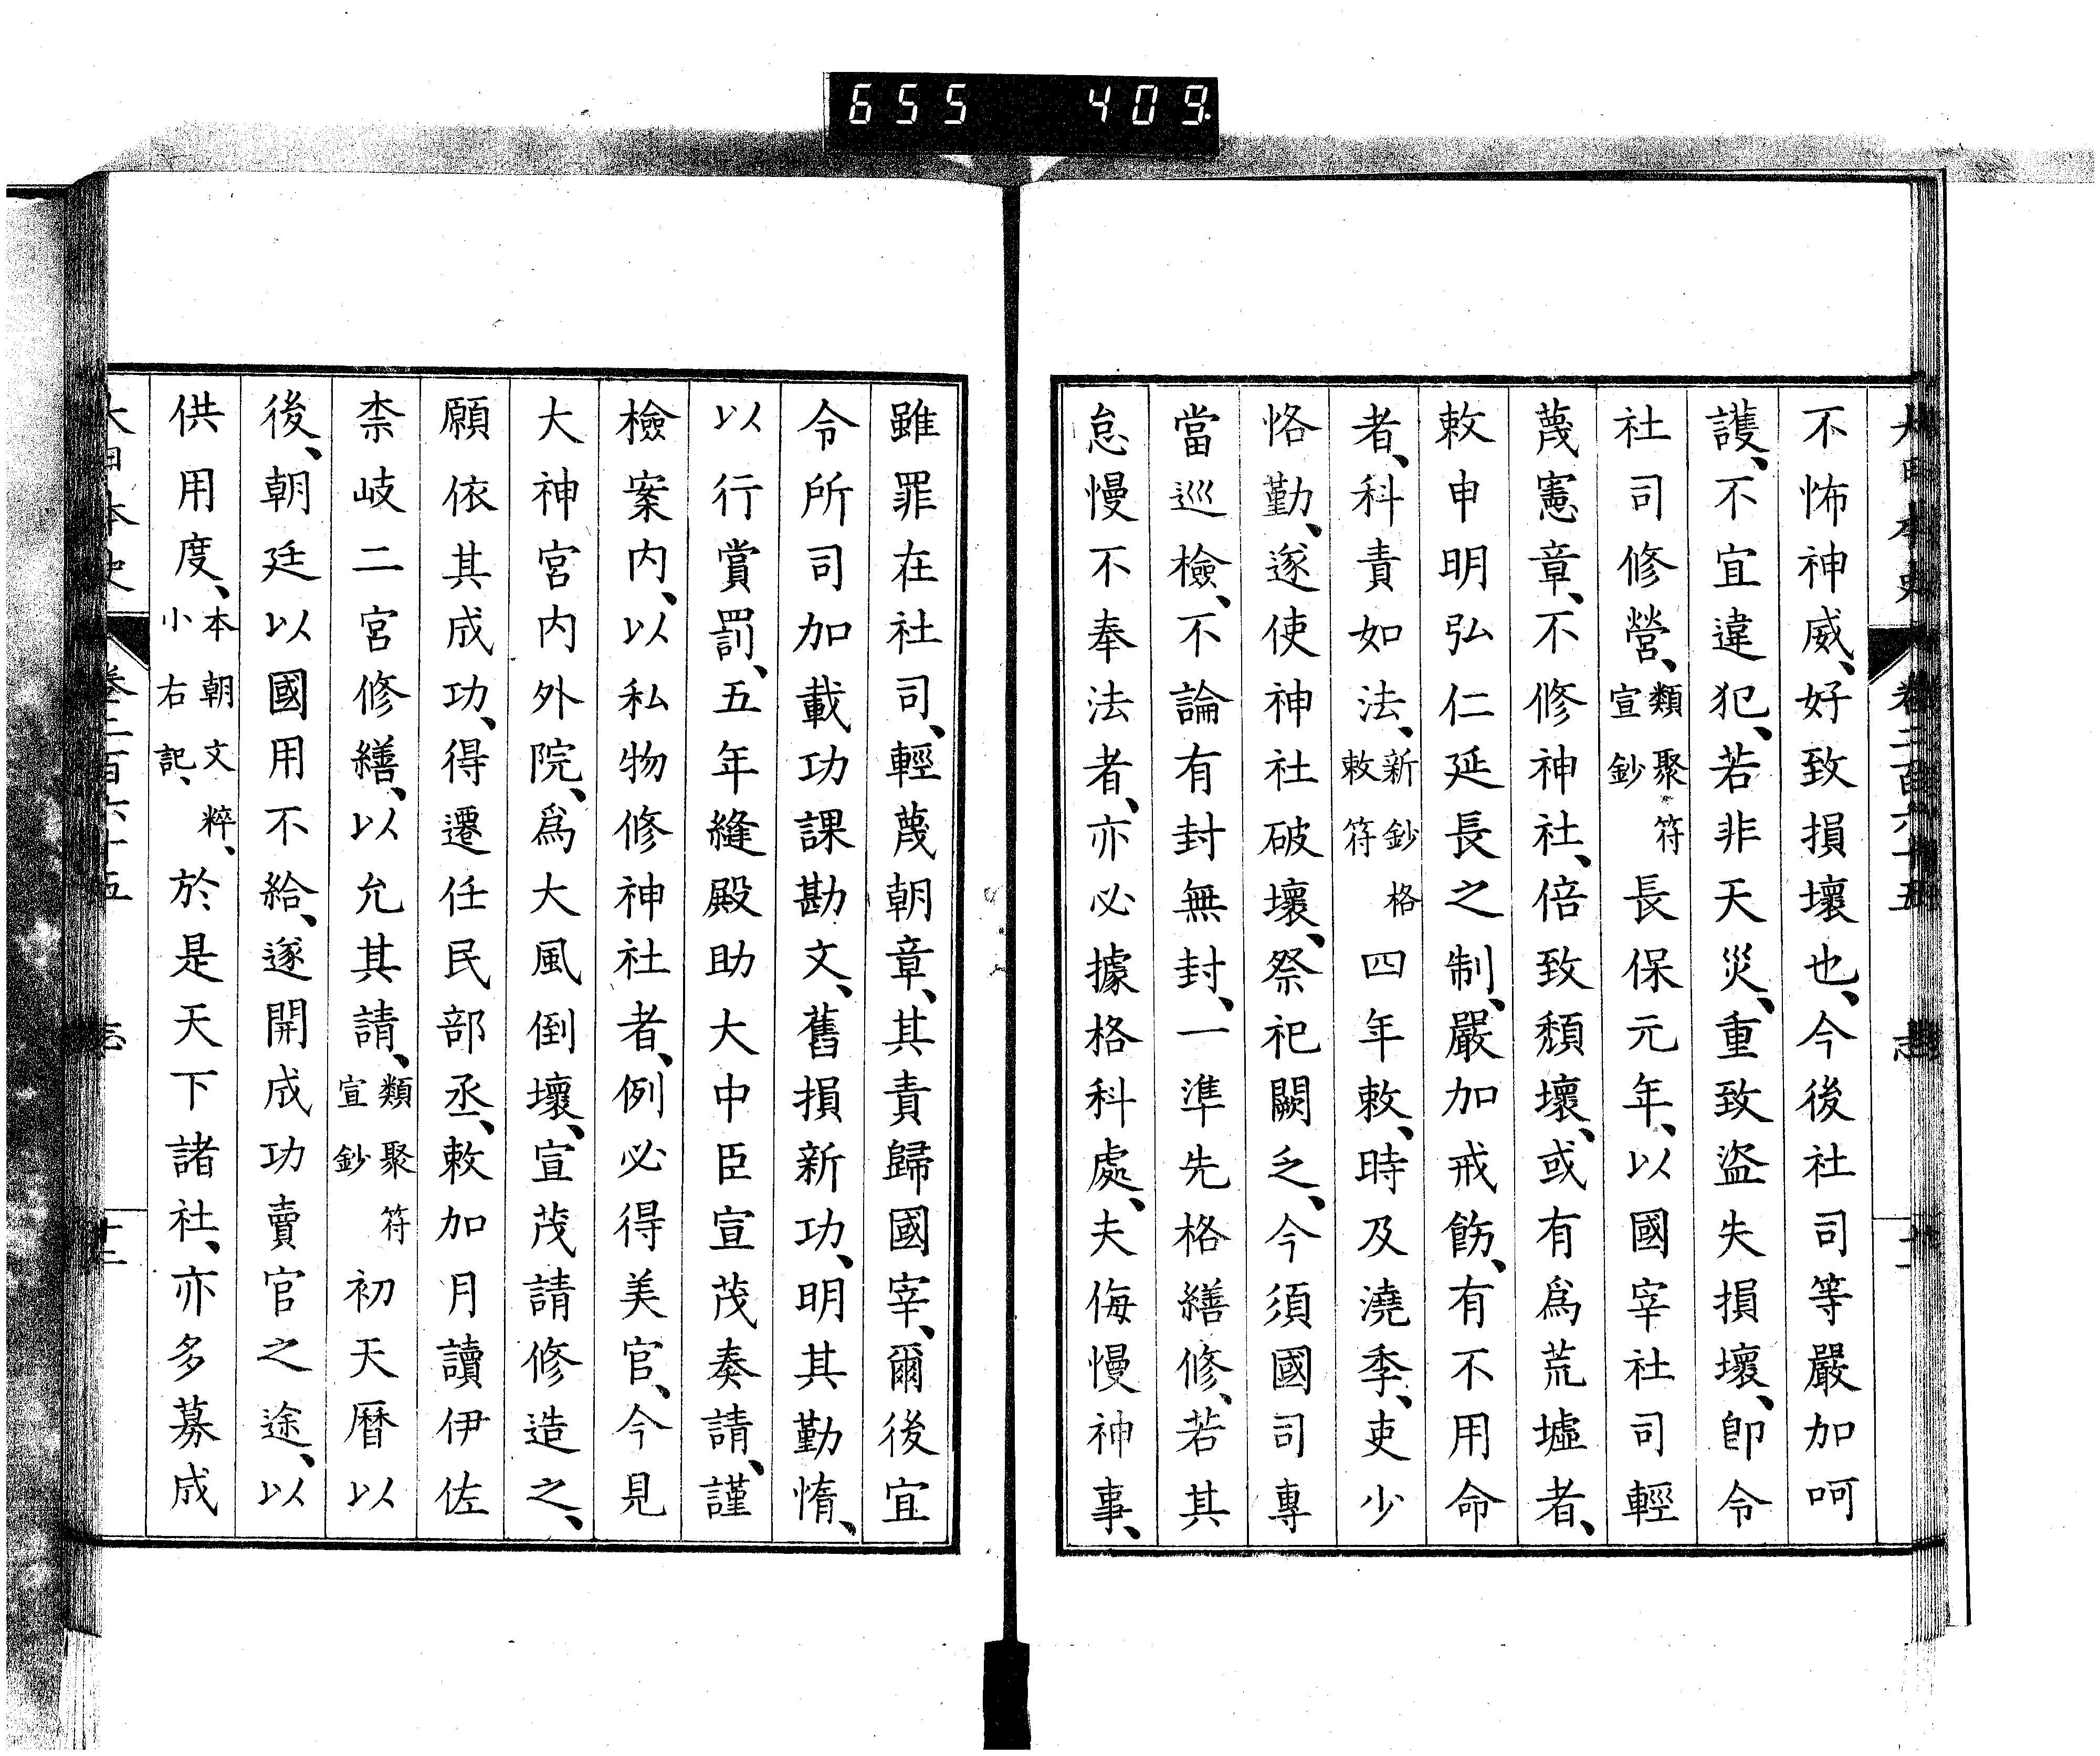 655 409.
大日本史 卷二百六十五 志 十一
不怖神威、好致損壞也、今後社司等嚴加呵
護、不宜違犯、若非天災、重致盜失損壞、卽令
社司修營、類聚符宣鈔長保元年、以國宰社司輕
蔑憲章、不修神社、倍致頽壞、或有爲荒墟者、
敕申明弘仁延長之制、嚴加戒飭、有不用命
者、科責如法、新鈔格敕符四年敕、時及澆季、吏少
恪勤、遂使神社破壞、祭祀闕乏、今須國司專
當巡檢、不論有封無封、一準先格繕修、若其
怠慢不奉法者、亦必據格科處、夫侮慢神事、
雖罪在社司、輕蔑朝章、其責歸國宰、爾後宜
令所司加載功課勘文、舊損新功、明其勤惰、
以行賞罰、五年縫殿助大中臣宣茂奏請、謹
檢案內、以私物修神社者、例必得美官、今見
大神宮內外院、爲大風倒壞、宣茂請修造之、
願依其成功、得遷任民部丞、敕加月讀伊佐
柰岐二宮修繕、以允其請、類聚符宣鈔初天曆以
後、朝廷以國用不給、遂開成功賣官之途、以
供用度、本朝文粹、小右記、於是天下諸社、亦多募成
大日本史 卷二百六十五 志 十二